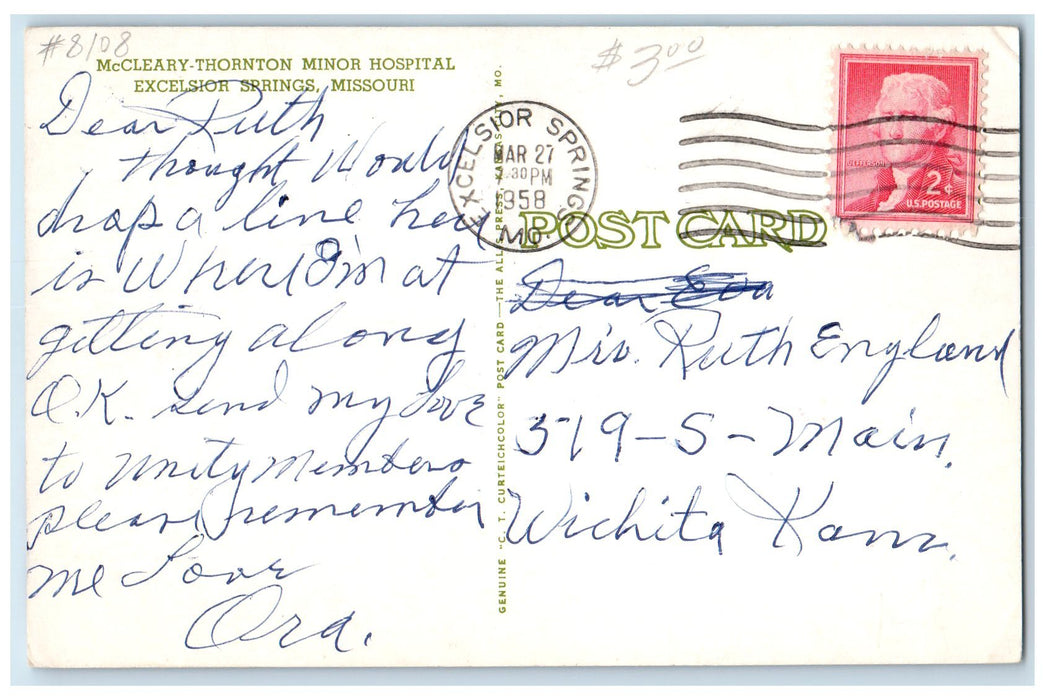 #8108
McCLEARY-THORNTON MINOR HOSPITAL
EXCELSIOR SPRINGS, MISSOURI
Dear Ruth
thought Would
drop a line here
is Where I'm at
getting along
O.K. send my love
to Unity Members
please remember
me Love
Ora.
GENUINE "C. T. CURTEICHCOLOR" POST CARD—THE ALLIS PRESS, KANSAS CITY, MO.
$3.00
EXCELSIOR SPRINGS
MAR 27
30 PM
1958
MO.
JEFFERSON
2¢
U.S. POSTAGE
POST CARD
Dear Eva
Mrs. Ruth England
319-S-Main,
Wichita Kans.